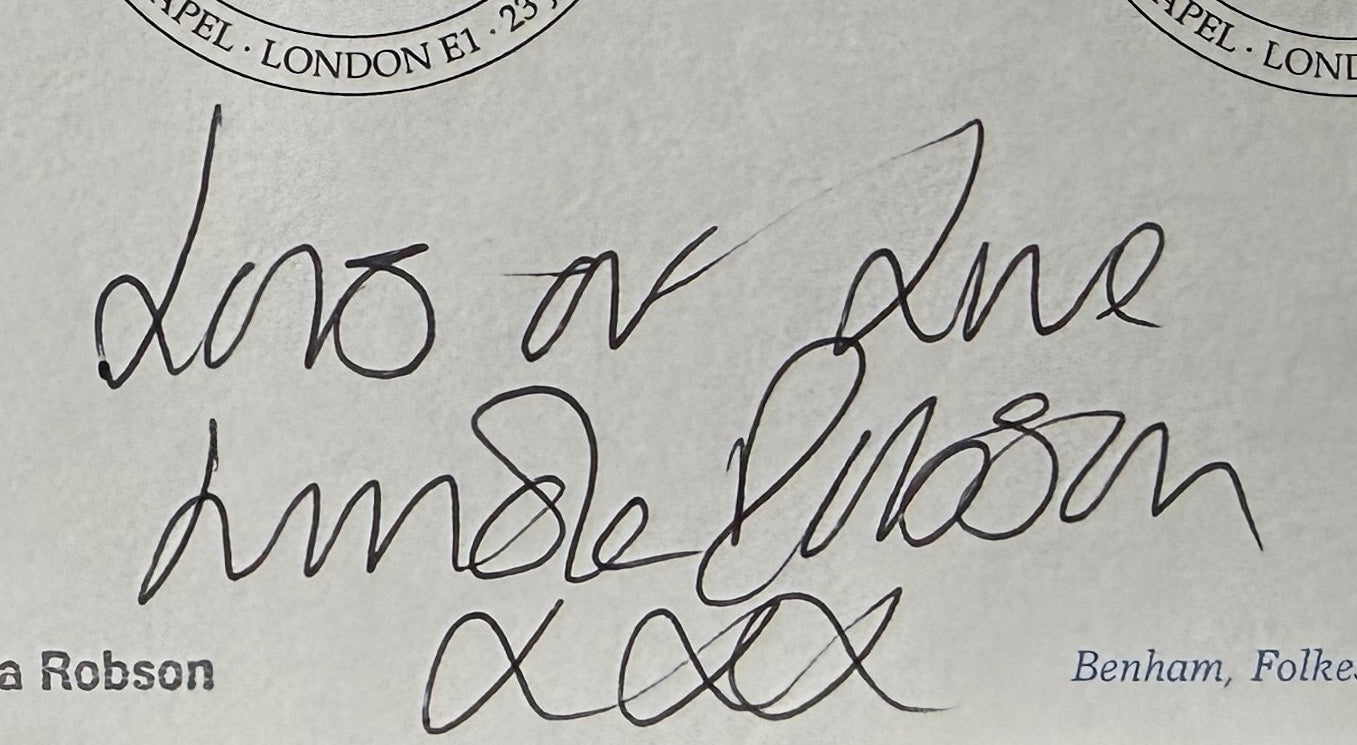 APEL · LONDON E1 · 23 J
APEL · LOND
Lots of Love
Linda Robson
xxx
a Robson
Benham, Folkes